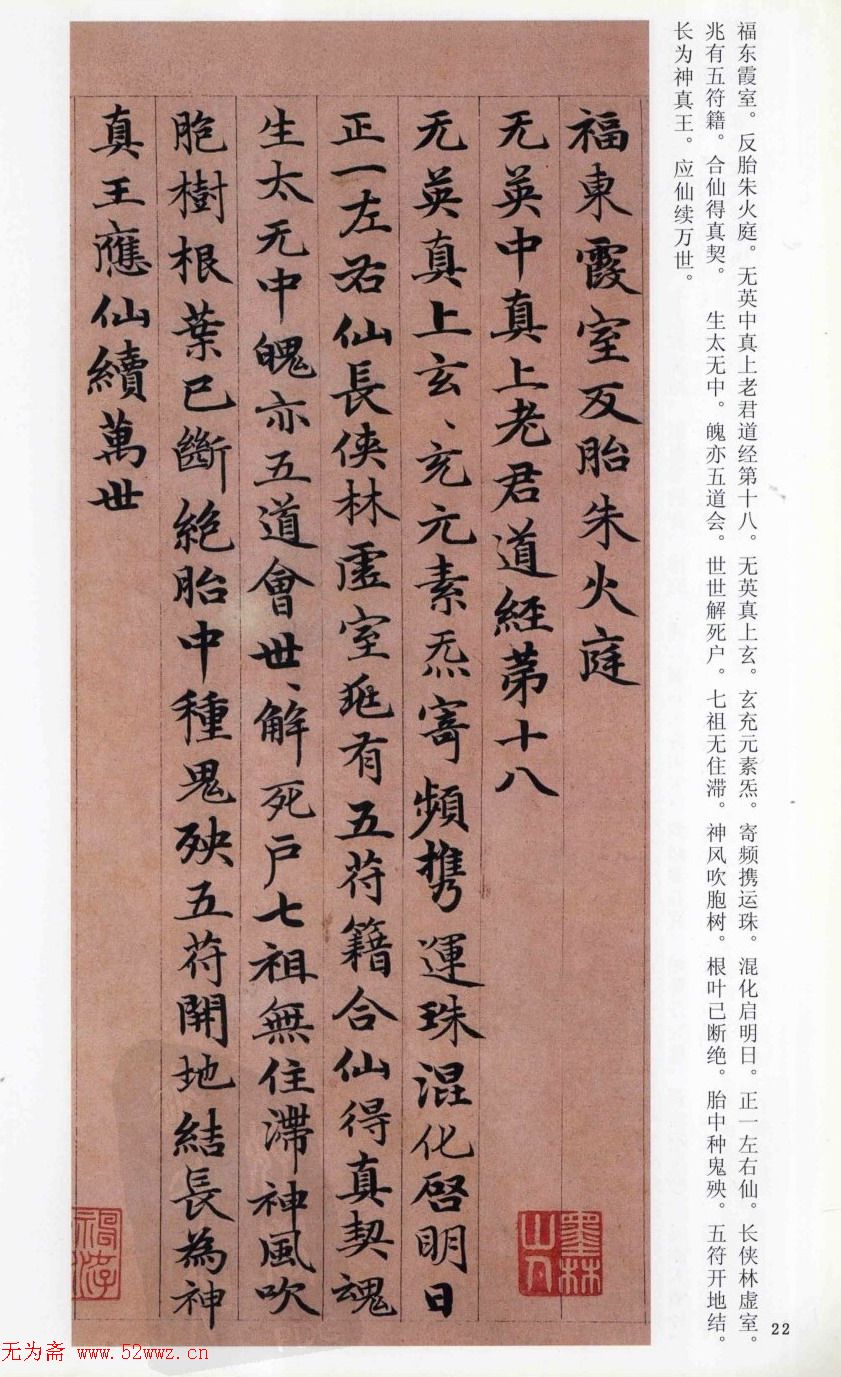 福东霞室。反胎朱火庭。无英中真上老君道经第十八。无英真上玄。玄充元素炁。寄频携运珠。混化启明日。正一左右仙。长侠林虚室。
兆有五符籍。合仙得真契。 生太无中。魄亦五道会。世世解死户。七祖无住滞。神风吹胞树。根叶已断绝。胎中种鬼殃。五符开地结。
长为神真王。应仙续万世。
福東霞室反胎朱火庭
无英中真上老君道經第十八
无英真上玄、充元素炁寄頻携運珠混化啓明日
正一左右仙長侠林虚室兆有五符籍合仙得真契魂
生太无中魄亦五道會世、解死戶七祖無住滯神風吹
胞樹根葉已斷絶胎中種鬼殃五符開地結長為神
真王應仙續萬世
墨林山人
22
无为斋 www.52wwz.cn